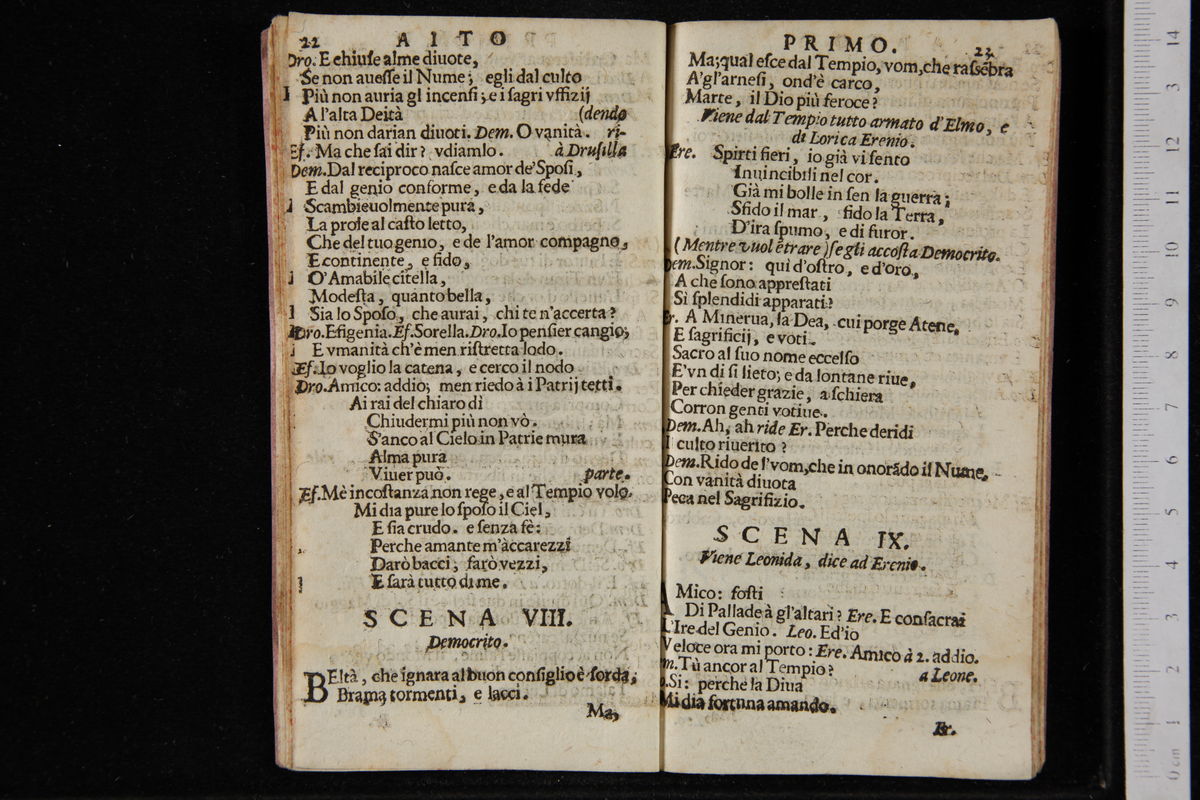 22 AITO
Dro. E chiuſe alme diuote,
Se non aueſſe il Nume; egli dal culto
Più non auria gl incenſi; e i ſagri vffizij
A l'alta Deità (dendo
Più non darian diuoti. Dem. O vanità. ri-
Ef. Ma che ſai dir? vdiamlo. à Druſilla
Dem. Dal reciproco naſce amor de' Spoſi,
E dal genio conforme, e da la fede
Scambieuolmente pura,
La prole al caſto letto,
Che del tuo genio, e de l'amor compagno,
E continente, e fido,
O' Amabile citella,
Modeſta, quanto bella,
Sia lo Spoſo, che aurai, chi te n'accerta?
Dro. Efigenia. Ef. Sorella. Dro. Io penſier cangio;
E vmanità ch'è men riſtretta lodo.
Ef. Io voglio la catena, e cerco il nodo
Dro. Amico: addio; men riedo à i Patrij tetti.
Ai rai del chiaro dì
Chiudermi più non vò.
S'anco al Cielo in Patrie mura
Alma pura
Viuer può. parte.
Ef. Mè incoſtanza non rege, e al Tempio volo.
Mi dia pure lo ſpoſo il Ciel,
E ſia crudo. e ſenza fè:
Perche amante m'accarezzi
Darò bacci, farò vezzi,
E ſarà tutto di me.
SCENA VIII.
Democrito.
BEltà, che ignara al buon conſiglio è ſorda,
Brama tormenti, e lacci.
Ma,
PRIMO. 23
Ma; qual eſce dal Tempio, vom, che raſſẽbra
A'gl'arneſi, ond'è carco,
Marte, il Dio più feroce?
Viene dal Tempio tutto armato d'Elmo, e
di Lorica Erenio.
Ere. Spirti fieri, io già vi ſento
Inuincibili nel cor.
Già mi bolle in ſen la guerra;
Sfido il mar, ſido la Terra,
D'ira ſpumo, e di furor.
(Mentre vuol ẽtrare) ſe gli accoſta Democrito.
Dem. Signor: qui d'oſtro, e d'oro,
A che ſono appreſtati
Si ſplendidi apparati?
Er. A Minerua, la Dea, cui porge Atene,
E ſagrificij, e voti.
Sacro al ſuo nome eccelſo
E'vn di ſi lieto; e da lontane riue,
Per chieder grazie, a ſchiera
Corron genti votiue.
Dem. Ah, ah ride Er. Perche deridi
I culto riuerito?
Dem. Rido de l'vom, che in onorãdo il Nume,
Con vanità diuota
Peca nel Sagrifizio.
SCENA IX.
Viene Leonida, dice ad Erenio.
AMico: foſti
Di Pallade à gl'altari? Ere. E conſacrai
L'Ire del Genio. Leo. Ed'io
Veloce ora mi porto: Ere. Amico à 2. addio.
m. Tù ancor al Tempio? a Leone.
o. Si: perche la Diua
Mi dia fortuna amando.
Er.